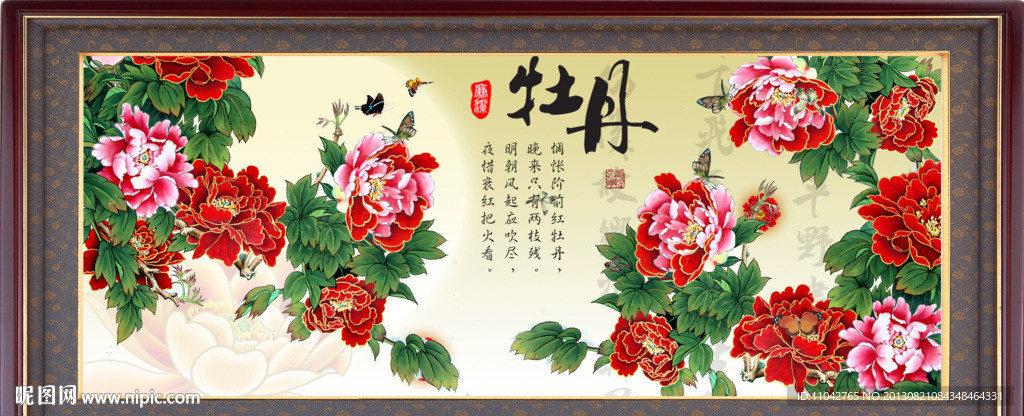 牡丹
惆怅阶前红牡丹，
晚来只有两枝残。
明朝风起应吹尽，
夜惜衰红把火看。
昵图网 www.nipic.com
ID:11042765 NO:20130821084348464331